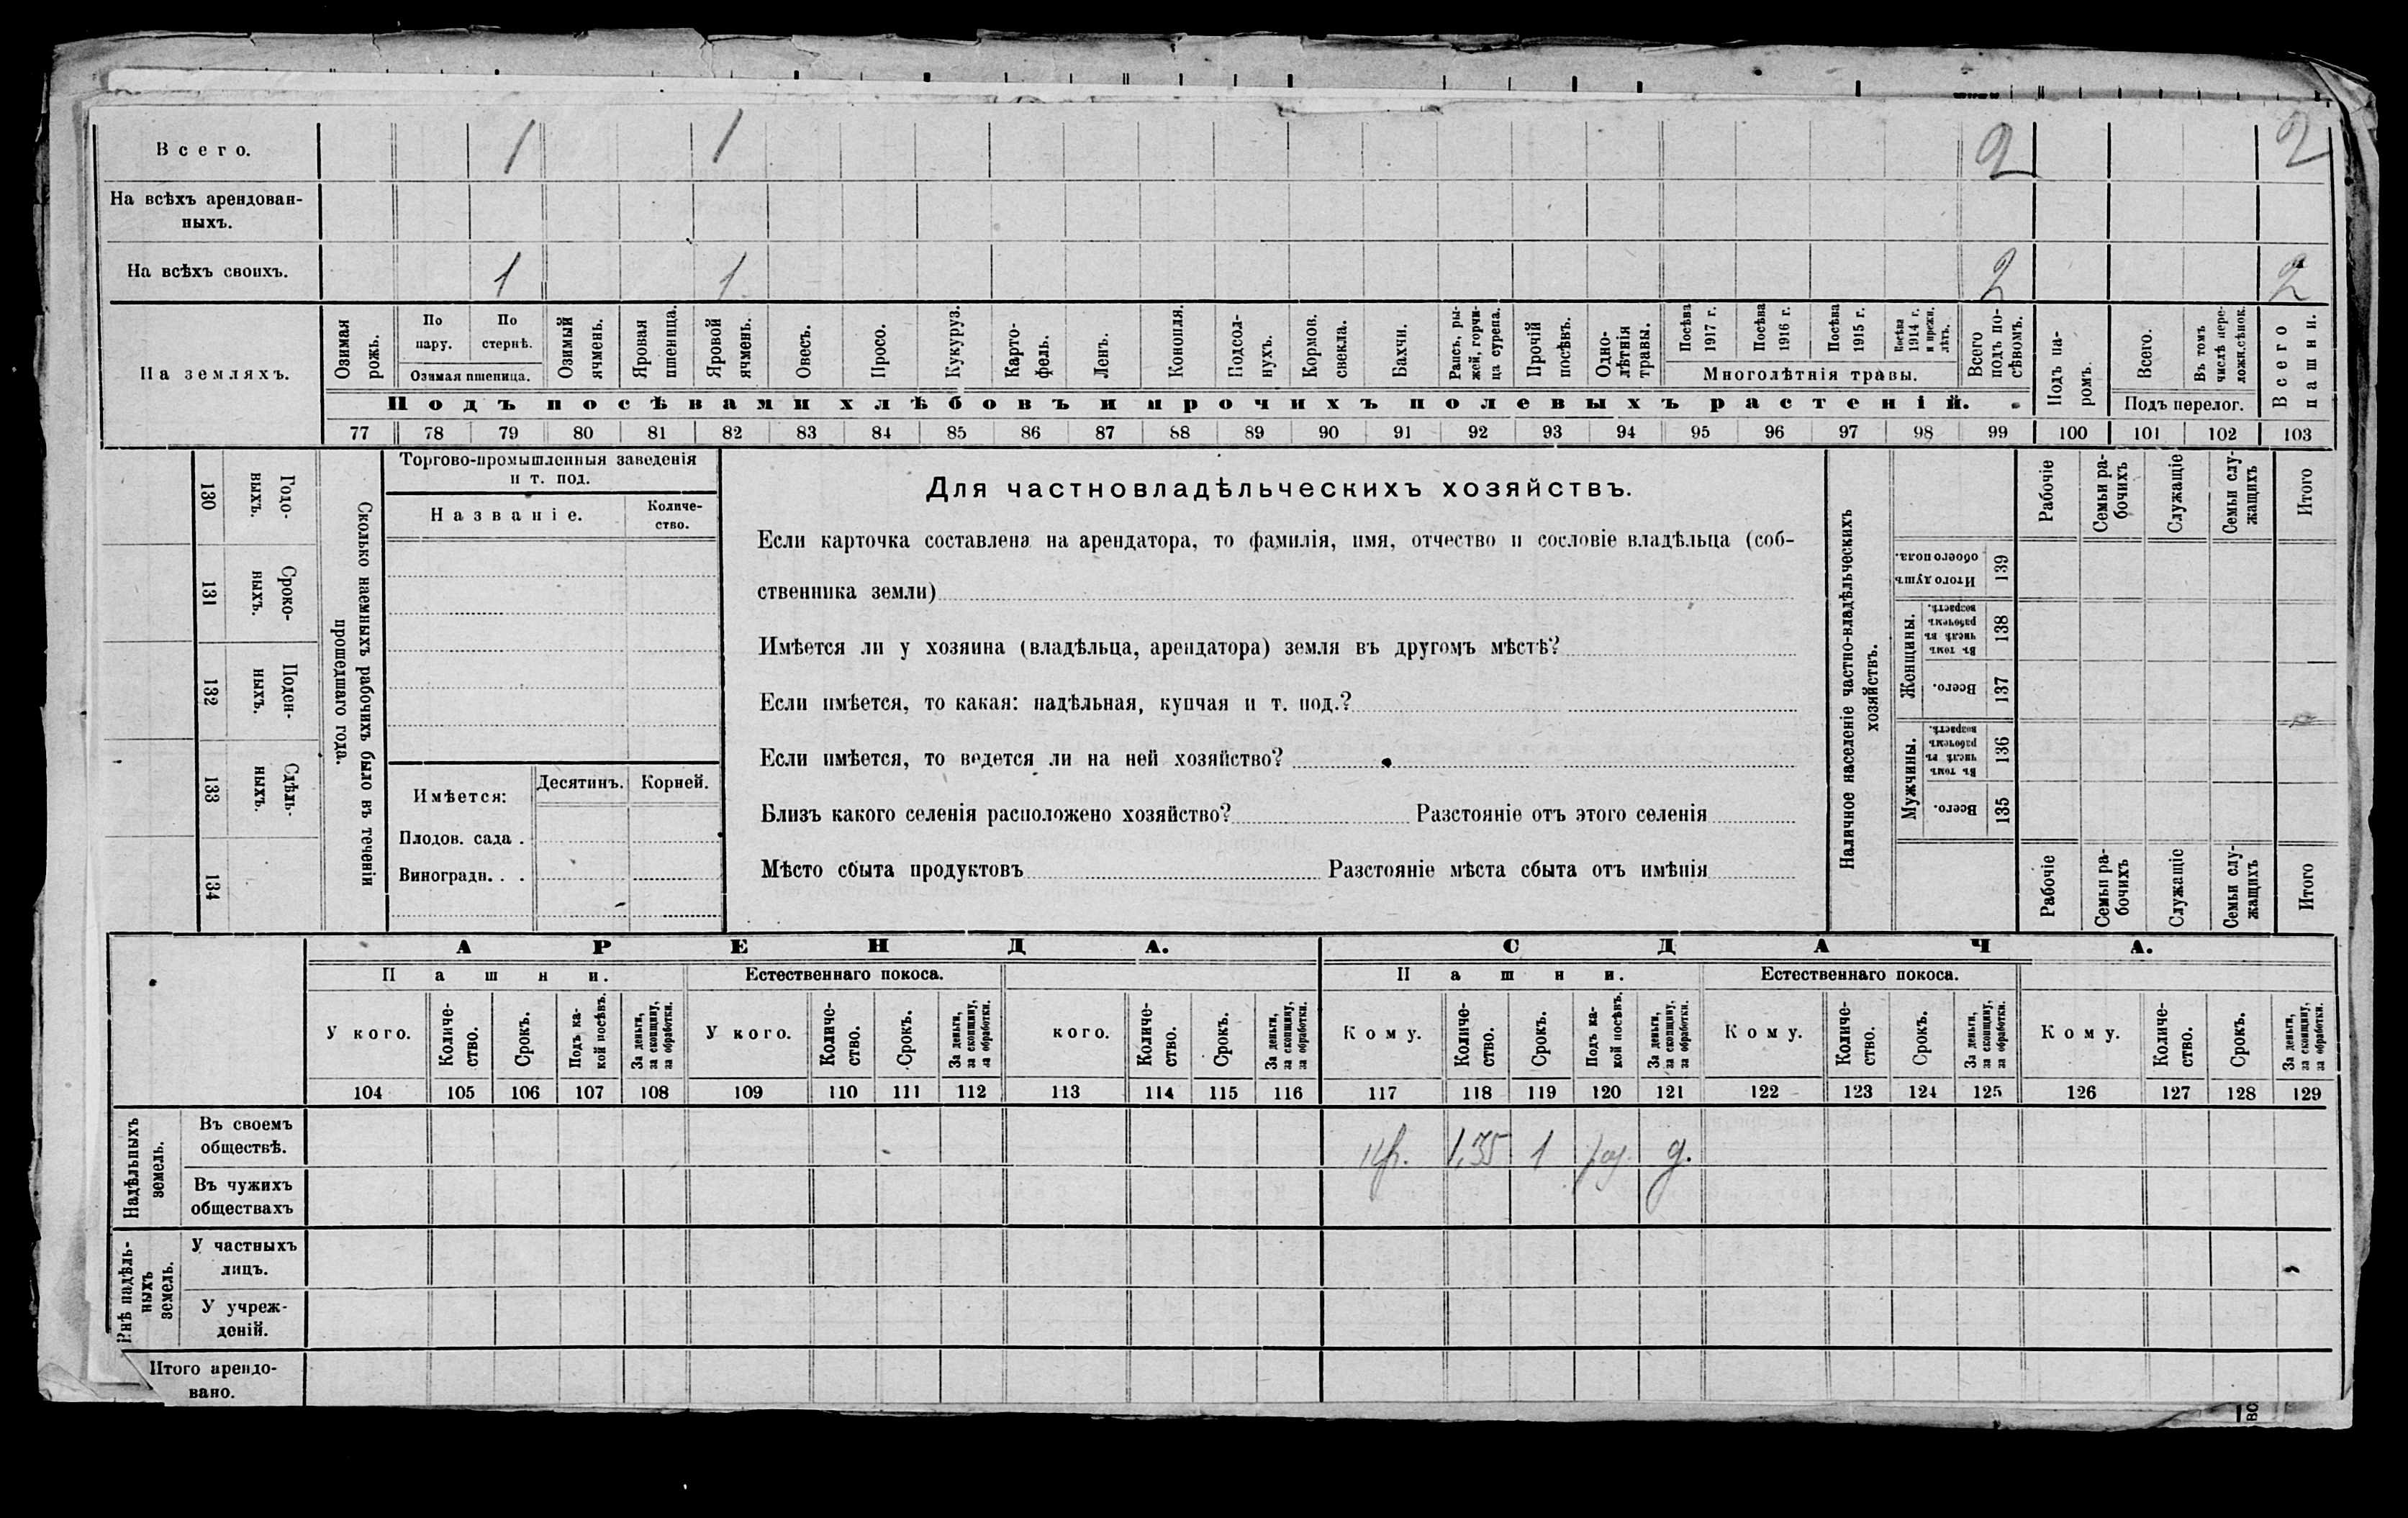 Всего. 1 1 2 2
На всѣхъ арендован-
ныхъ.
На всѣхъ своихъ. 1 1 2 2
На земляхъ.
Озимая
рожь.
По
пару.
По
стернѣ.
Озимая пшеница.
Озимый
ячмень.
Яровая
пшеница.
Яровой
ячмень.
Овесъ.
Просо.
Кукуруз.
Карто-
фель.
Ленъ.
Конопля.
Подсол-
нухъ.
Кормов.
свекла.
Бахчи.
Рапсъ, ры-
жей, горчи-
ца сурепа.
Прочій
посѣвъ.
Одно-
лѣтнія
травы.
Посѣва
1917 г.
Посѣва
1916 г.
Посѣва
1915 г.
Посѣва
1914 г.
и прежн.
лѣтъ.
Многолѣтнія травы.
Всего
подъ по-
сѣвомъ.
Подъ посѣвами хлѣбовъ и прочихъ полевыхъ растеній.
Подъ па-
ромъ.
Всего.
Въ томъ
числѣ пере-
ложн.сѣнок.
Подъ перелог.
Всего
пашни.
77 78 79 80 81 82 83 84 85 86 87 88 89 90 91 92 93 94 95 96 97 98 99 100 101 102 103
130 Годо-
ныхъ.
131 Сроко-
ныхъ.
132 Поден-
ныхъ.
133 Сдѣль-
ныхъ.
134
Сколько наемныхъ рабочихъ было въ теченіи
прошедшаго года.
Торгово-промышленныя заведенія
и т. под.
Названіе.
Количе-
ство.
Имѣется:
Десятинъ. Корней.
Плодов. сада .
Виноградн. . .
Для частновладѣльческихъ хозяйствъ.
Если карточка составлена на арендатора, то фамилія, имя, отчество и сословіе владѣльца (соб-
ственника земли)
Имѣется ли у хозяина (владѣльца, арендатора) земля въ другомъ мѣстѣ?
Если имѣется, то какая: надѣльная, купчая и т. под.?
Если имѣется, то ведется ли на ней хозяйство?
Близъ какого селенія расположено хозяйство? Разстояніе отъ этого селенія
Мѣсто сбыта продуктовъ Разстояніе мѣста сбыта отъ имѣнія
Наличное населеніе частно-владѣльческихъ
хозяйствъ.
Рабочіе
Семьи ра-
бочихъ
Служащіе
Семьи слу-
жащихъ
Итого
Итого душъ
обоего пола.
139
Женщины.
Въ томъ
числѣ въ
рабочемъ
возрастѣ.
138
Всего.
137
Мужчины.
Въ томъ
числѣ въ
рабочемъ
возрастѣ.
136
Всего.
135
Рабочіе
Семьи ра-
бочихъ
Служащіе
Семьи слу-
жащихъ
Итого
АРЕНДА. СДАЧА.
Пашни. Естественнаго покоса. Пашни. Естественнаго покоса.
У кого.
Количе-
ство.
Срокъ.
Подъ ка-
кой посѣвъ.
За деньги,
за скопщину,
за обработки.
У кого.
Количе-
ство.
Срокъ.
За деньги,
за скопщину,
за обработки.
кого.
Количе-
ство.
Срокъ.
За деньги,
за скопщину,
за обработки.
Кому.
Количе-
ство.
Срокъ.
Подъ ка-
кой посѣвъ.
За деньги,
за скопщину,
за обработки.
Кому.
Количе-
ство.
Срокъ.
За деньги,
за скопщину,
за обработки.
Кому.
Количе-
ство.
Срокъ.
За деньги,
за скопщину,
за обработки.
104 105 106 107 108 109 110 111 112 113 114 115 116 117 118 119 120 121 122 123 124 125 126 127 128 129
Надѣльныхъ
земель.
Въ своемъ
обществѣ.
1,35 1 д.
Въ чужихъ
обществахъ
Внѣ надѣль-
ныхъ
земель.
У частныхъ
лицъ.
У учреж-
деній.
Итого арендо-
вано.
во